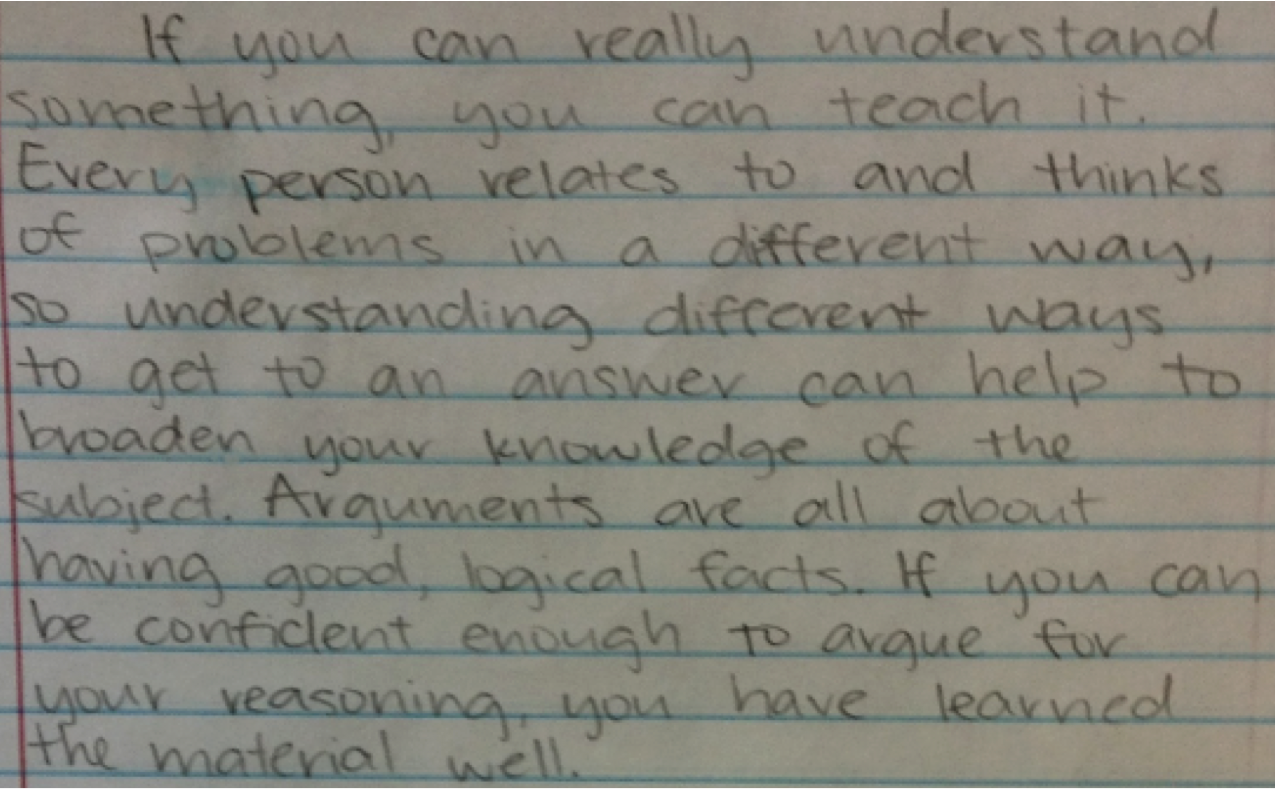 If you can really understand
something, you can teach it.
Every person relates to and thinks
of problems in a different way,
so understanding different ways
to get to an answer can help to
broaden your knowledge of the
subject. Arguments are all about
having good, logical facts. If you can
be confident enough to argue for
your reasoning, you have learned
the material well.